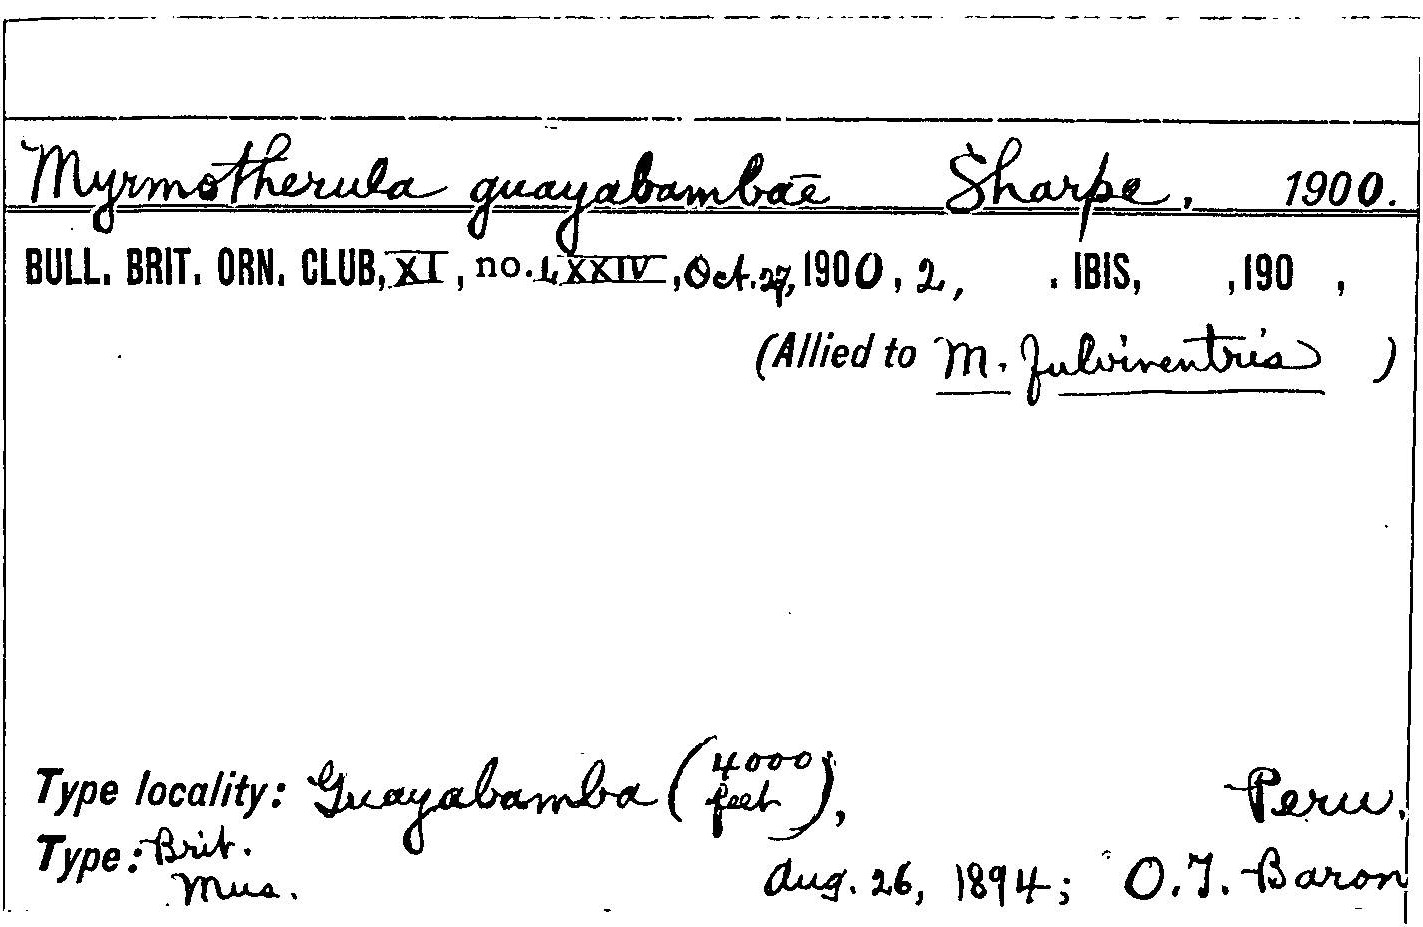 Myrmotherula guayabambae Sharpe, 1900.
BULL. BRIT. ORN. CLUB, XI, no. LXXIV, Oct. 27, 1900, 2, . IBIS, , 190 ,
(Allied to M. fulviventris )
Type locality: Guayabamba (4000 feet), Peru.
Type: Brit. Mus. Aug. 26, 1894; O.T. Baron